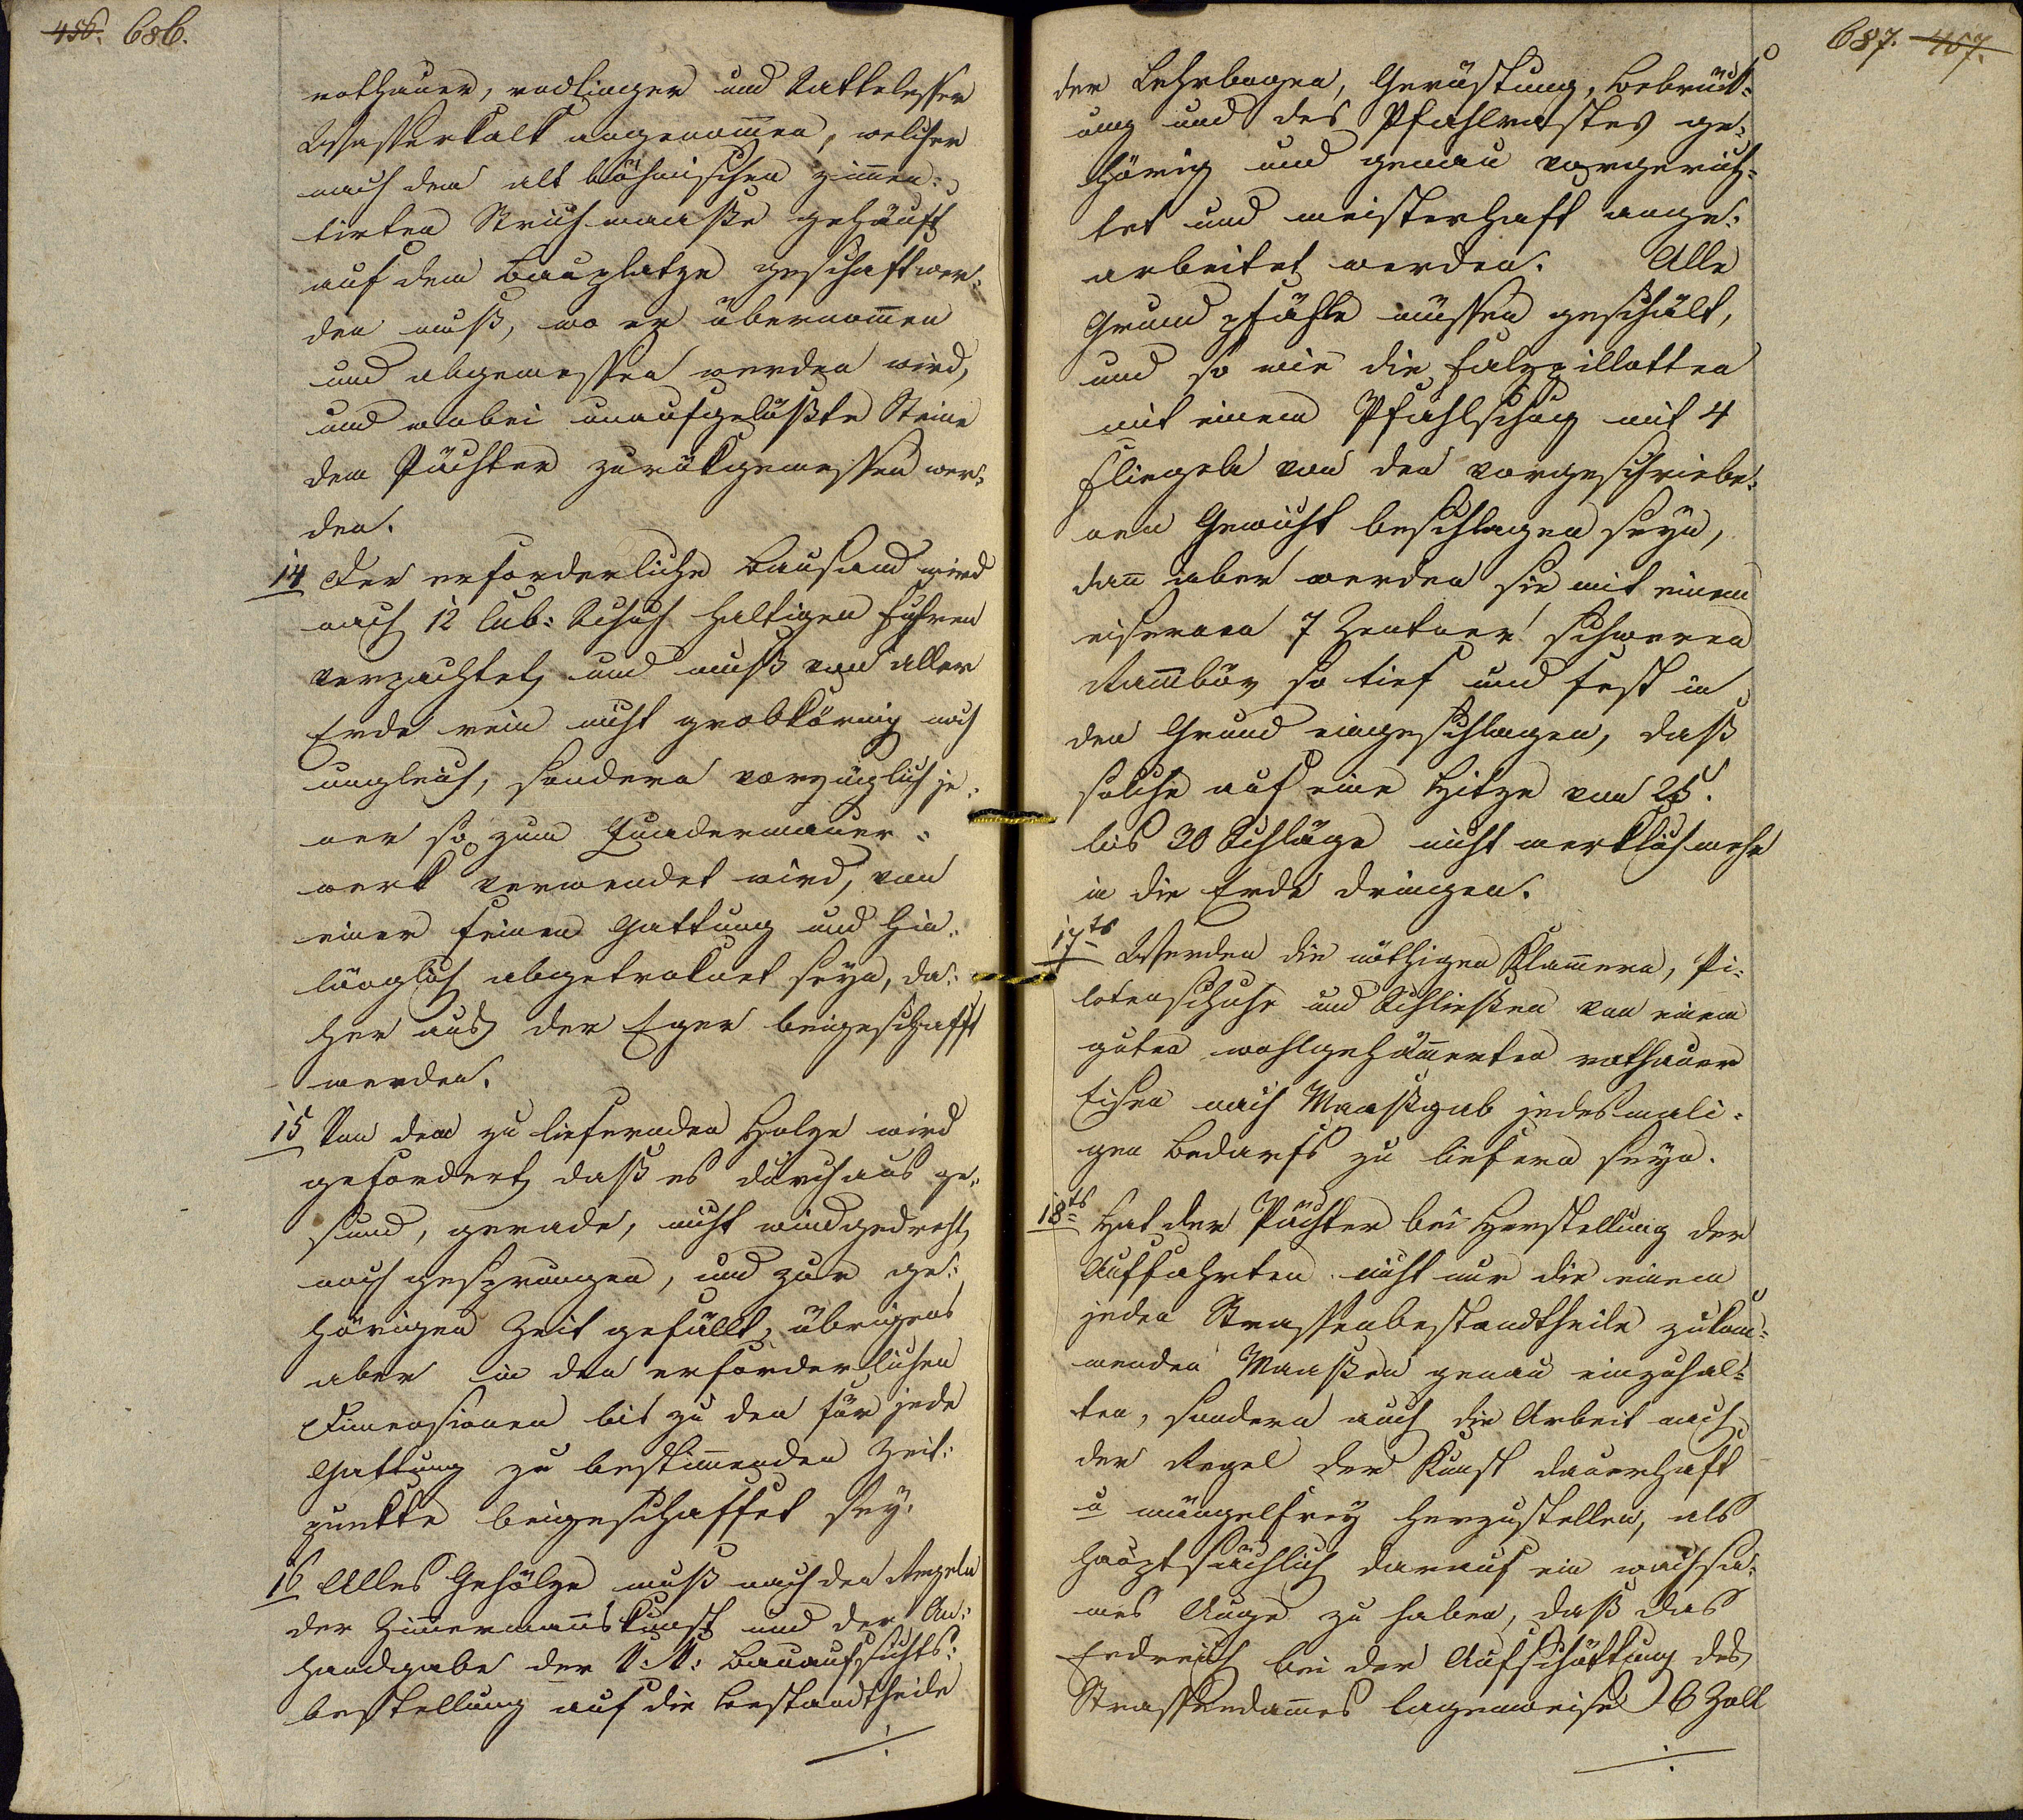 456. 686.
rothauer, rodlinger und Sattelesser
Wasserkalk angenom̄en, welcher
nach den alt böhmischen zimmen-
tirten Strichmaaße gehäuft
auf dem Bauplatze geschaft wer-
den muß, wo er übernom̄en
und abgemessen werden wird,
und wobei unaufgelößte Steine
dem Pächter zurükgemessen wer-
den.
14 Der erforderliche Bausand wird
nach 12 Cub: Schuh haltigen Fuhren
verpachtet, und muß von aller
Erde rein nicht grobkörnig noch
ungleich, sondern vorzüglich je-
ner so zum Quadermauer-
werk verwendet wird, von
einer feinen Gattung und hin-
länglich abgetroknet seyn, da-
her aus der Eger beigeschafft
werden.
15 Von dem zu liefernden Holze wird
gefordert, daß es durchaus ge-
sund, gerade, nicht windgedreht,
noch gesprungen, und zur ge-
hörigen Zeit gefällt, übrigens
aber in den erforderlichen
Dimensionen bis zu den für jede
Gattung zu bestim̄enden Zeit-
punkte beigeschaffet sey.
16 Alles Gehölze muß nach den Regeln
der Zim̄ermannskunst und der An-
handgabe der K: K: Bauaufsichts-
bestellung auf die Bestandtheile
./.
687. 457.
der Lehrbogen, Gerüstung, Bebrük-
ung und des Pfahlrostes ge-
hörig und genau vorgerich-
tet und meisterhaft ange-
arbeitet werden. Alle
Grund pfähle müssen geschält,
und so wie die Falzpillotten
mit einem Pfahlschuh mit 4
Fliegeln von den vorgeschriebe-
nen Gewicht beschlagen seyn,
dan̄ aber werden sie mit einem
eisernen 7 Zentner schweren
Ram̄bär so tief und fest in
den Grund eingeschlagen, daß
solche auf eine Hitze von 25.
bis 30 Schläge nicht merklich mehr
in die Erde dringen.
17ts Werden die nöthigen Klam̄ern, Pi-
lotenschuhe und Schließen von einem
guten wohlgehäm̄erten rothauer
Eisen nach Maaßgab jedesmali-
gen Bedarfs zu liefern seyn.
18ts Hat der Pächter bei Herstellung der
Auffahrten nicht nur die einem
jeden Strassenbestandtheile zukom-
menden Maaßen genau einzuhal-
ten, sondern auch die Arbeit nach
der Regel der Kunst dauerhaft
u mängelfrey herzustellen, als
hauptsächlich darauf ein wachsa-
mes Auge zu haben, daß das
Erdreich bei der Aufschüttung des
Strassendam̄es lagenweise 6 Zoll
./.